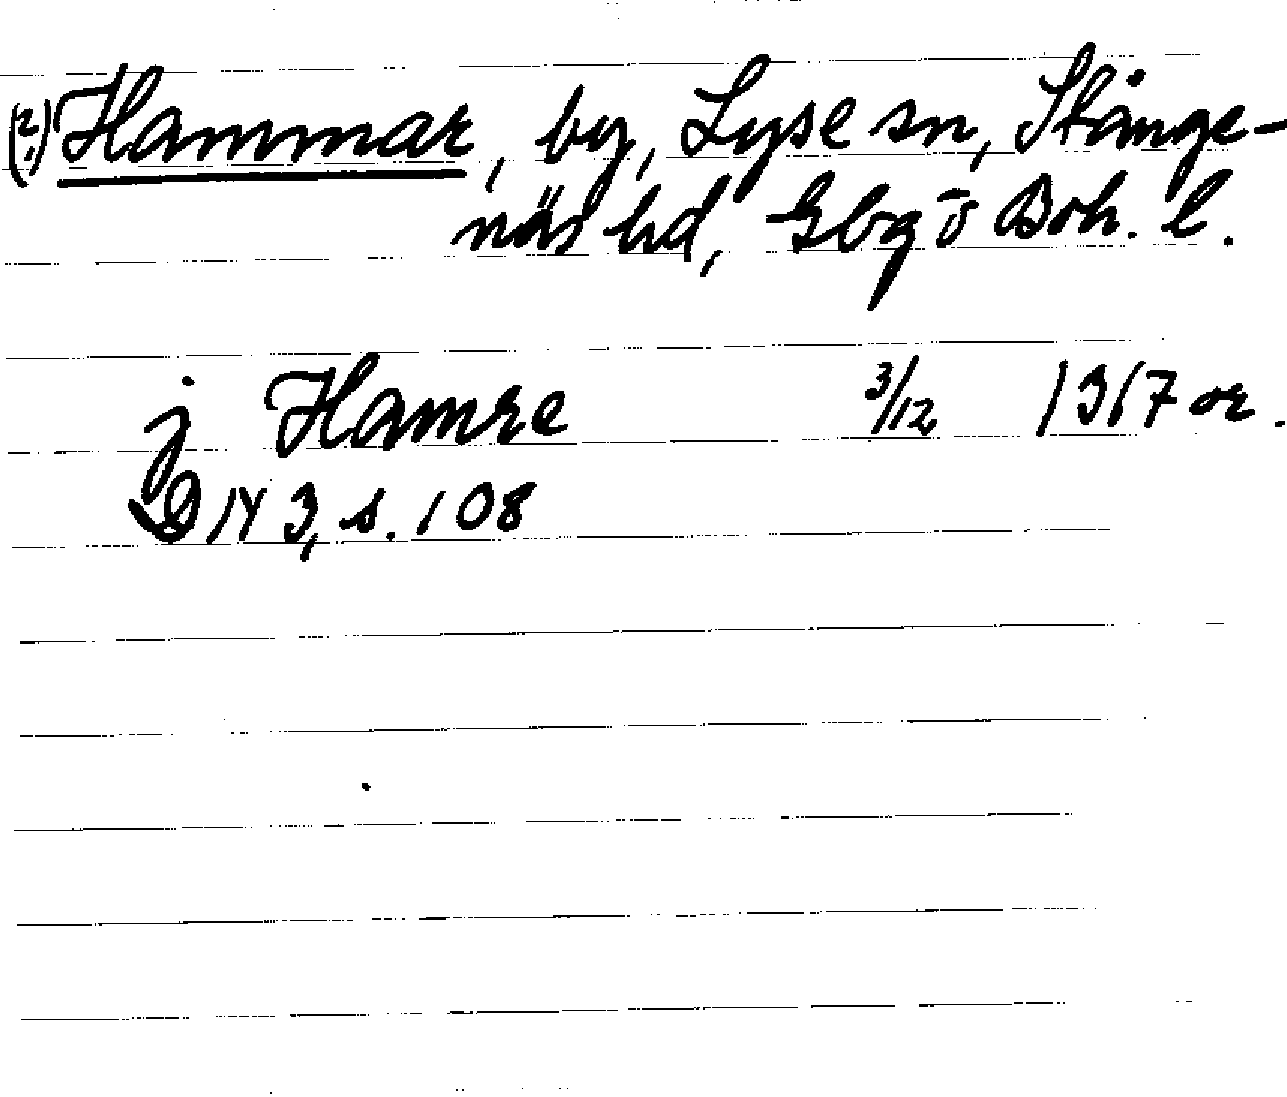 (?) Hammar, by, Lyse sn, Stånge-
näs hd, Gbg o Boh. l.
j Hamre 3/12 1317 or.
DN 3, s. 108